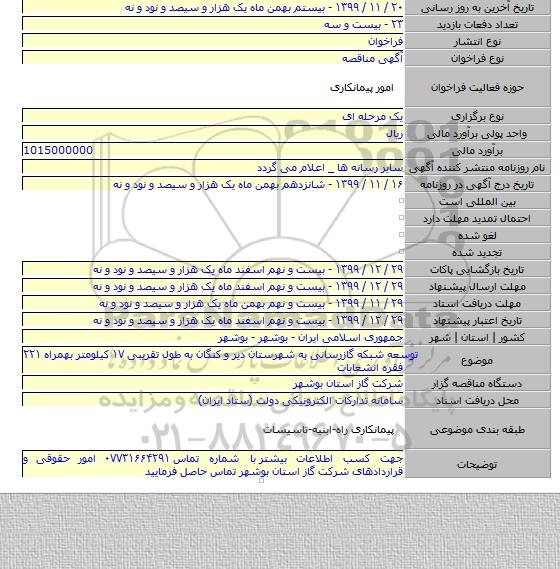 تاریخ آخرین به روز رسانی ۲۰ / ۱۱ / ۱۳۹۹ - بیستم بهمن ماه یک هزار و سیصد و نود و نه
تعداد دفعات بازدید ۲۳ - بیست و سه
نوع انتشار فراخوان
نوع فراخوان آگهی مناقصه
حوزه فعالیت فراخوان امور پیمانکاری
نوع برگزاری یک مرحله ای
واحد پولی برآورد مالی ریال
برآورد مالی 1015000000
نام روزنامه منتشر کننده آگهی سایر رسانه ها _ اعلام می گردد
تاریخ درج آگهی در روزنامه ۱۶ / ۱۱ / ۱۳۹۹ - شانزدهم بهمن ماه یک هزار و سیصد و نود و نه
بین المللی است
احتمال تمدید مهلت دارد
لغو شده
تجدید شده
تاریخ بازگشایی پاکات ۲۹ / ۱۲ / ۱۳۹۹ - بیست و نهم اسفند ماه یک هزار و سیصد و نود و نه
مهلت ارسال پیشنهاد ۲۹ / ۱۲ / ۱۳۹۹ - بیست و نهم اسفند ماه یک هزار و سیصد و نود و نه
مهلت دریافت اسناد ۲۹ / ۱۱ / ۱۳۹۹ - بیست و نهم بهمن ماه یک هزار و سیصد و نود و نه
تاریخ اعتبار پیشنهاد ۲۹ / ۱۲ / ۱۳۹۹ - بیست و نهم اسفند ماه یک هزار و سیصد و نود و نه
کشور | استان | شهر جمهوری اسلامی ایران - بوشهر - بوشهر
موضوع توسعه شبکه گازرسانی به شهرستان دیر و کنگان به طول تقریبی ۱۷ کیلومتر بهمراه ۲۲۱
فقره انشعابات
دستگاه مناقصه گزار شرکت گاز استان بوشهر
محل دریافت اسناد سامانه تدارکات الکترونیکی دولت (ستاد ایران)
طبقه بندی موضوعی پیمانکاری راه-ابنیه-تاسیسات
توضیحات جهت کسب اطلاعات بیشتر با شماره تماس ۰۷۷۳۱۶۶۴۲۹۱ امور حقوقی و
قراردادهای شرکت گاز استان بوشهر تماس حاصل فرمایید
۰۲۱-۸۸۳۴۹۶۷۰-۵